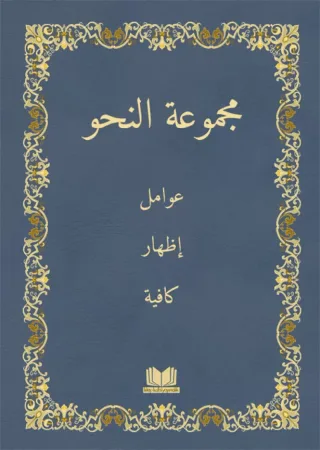 مجموعة النحو
عوامل
إظهار
كافية